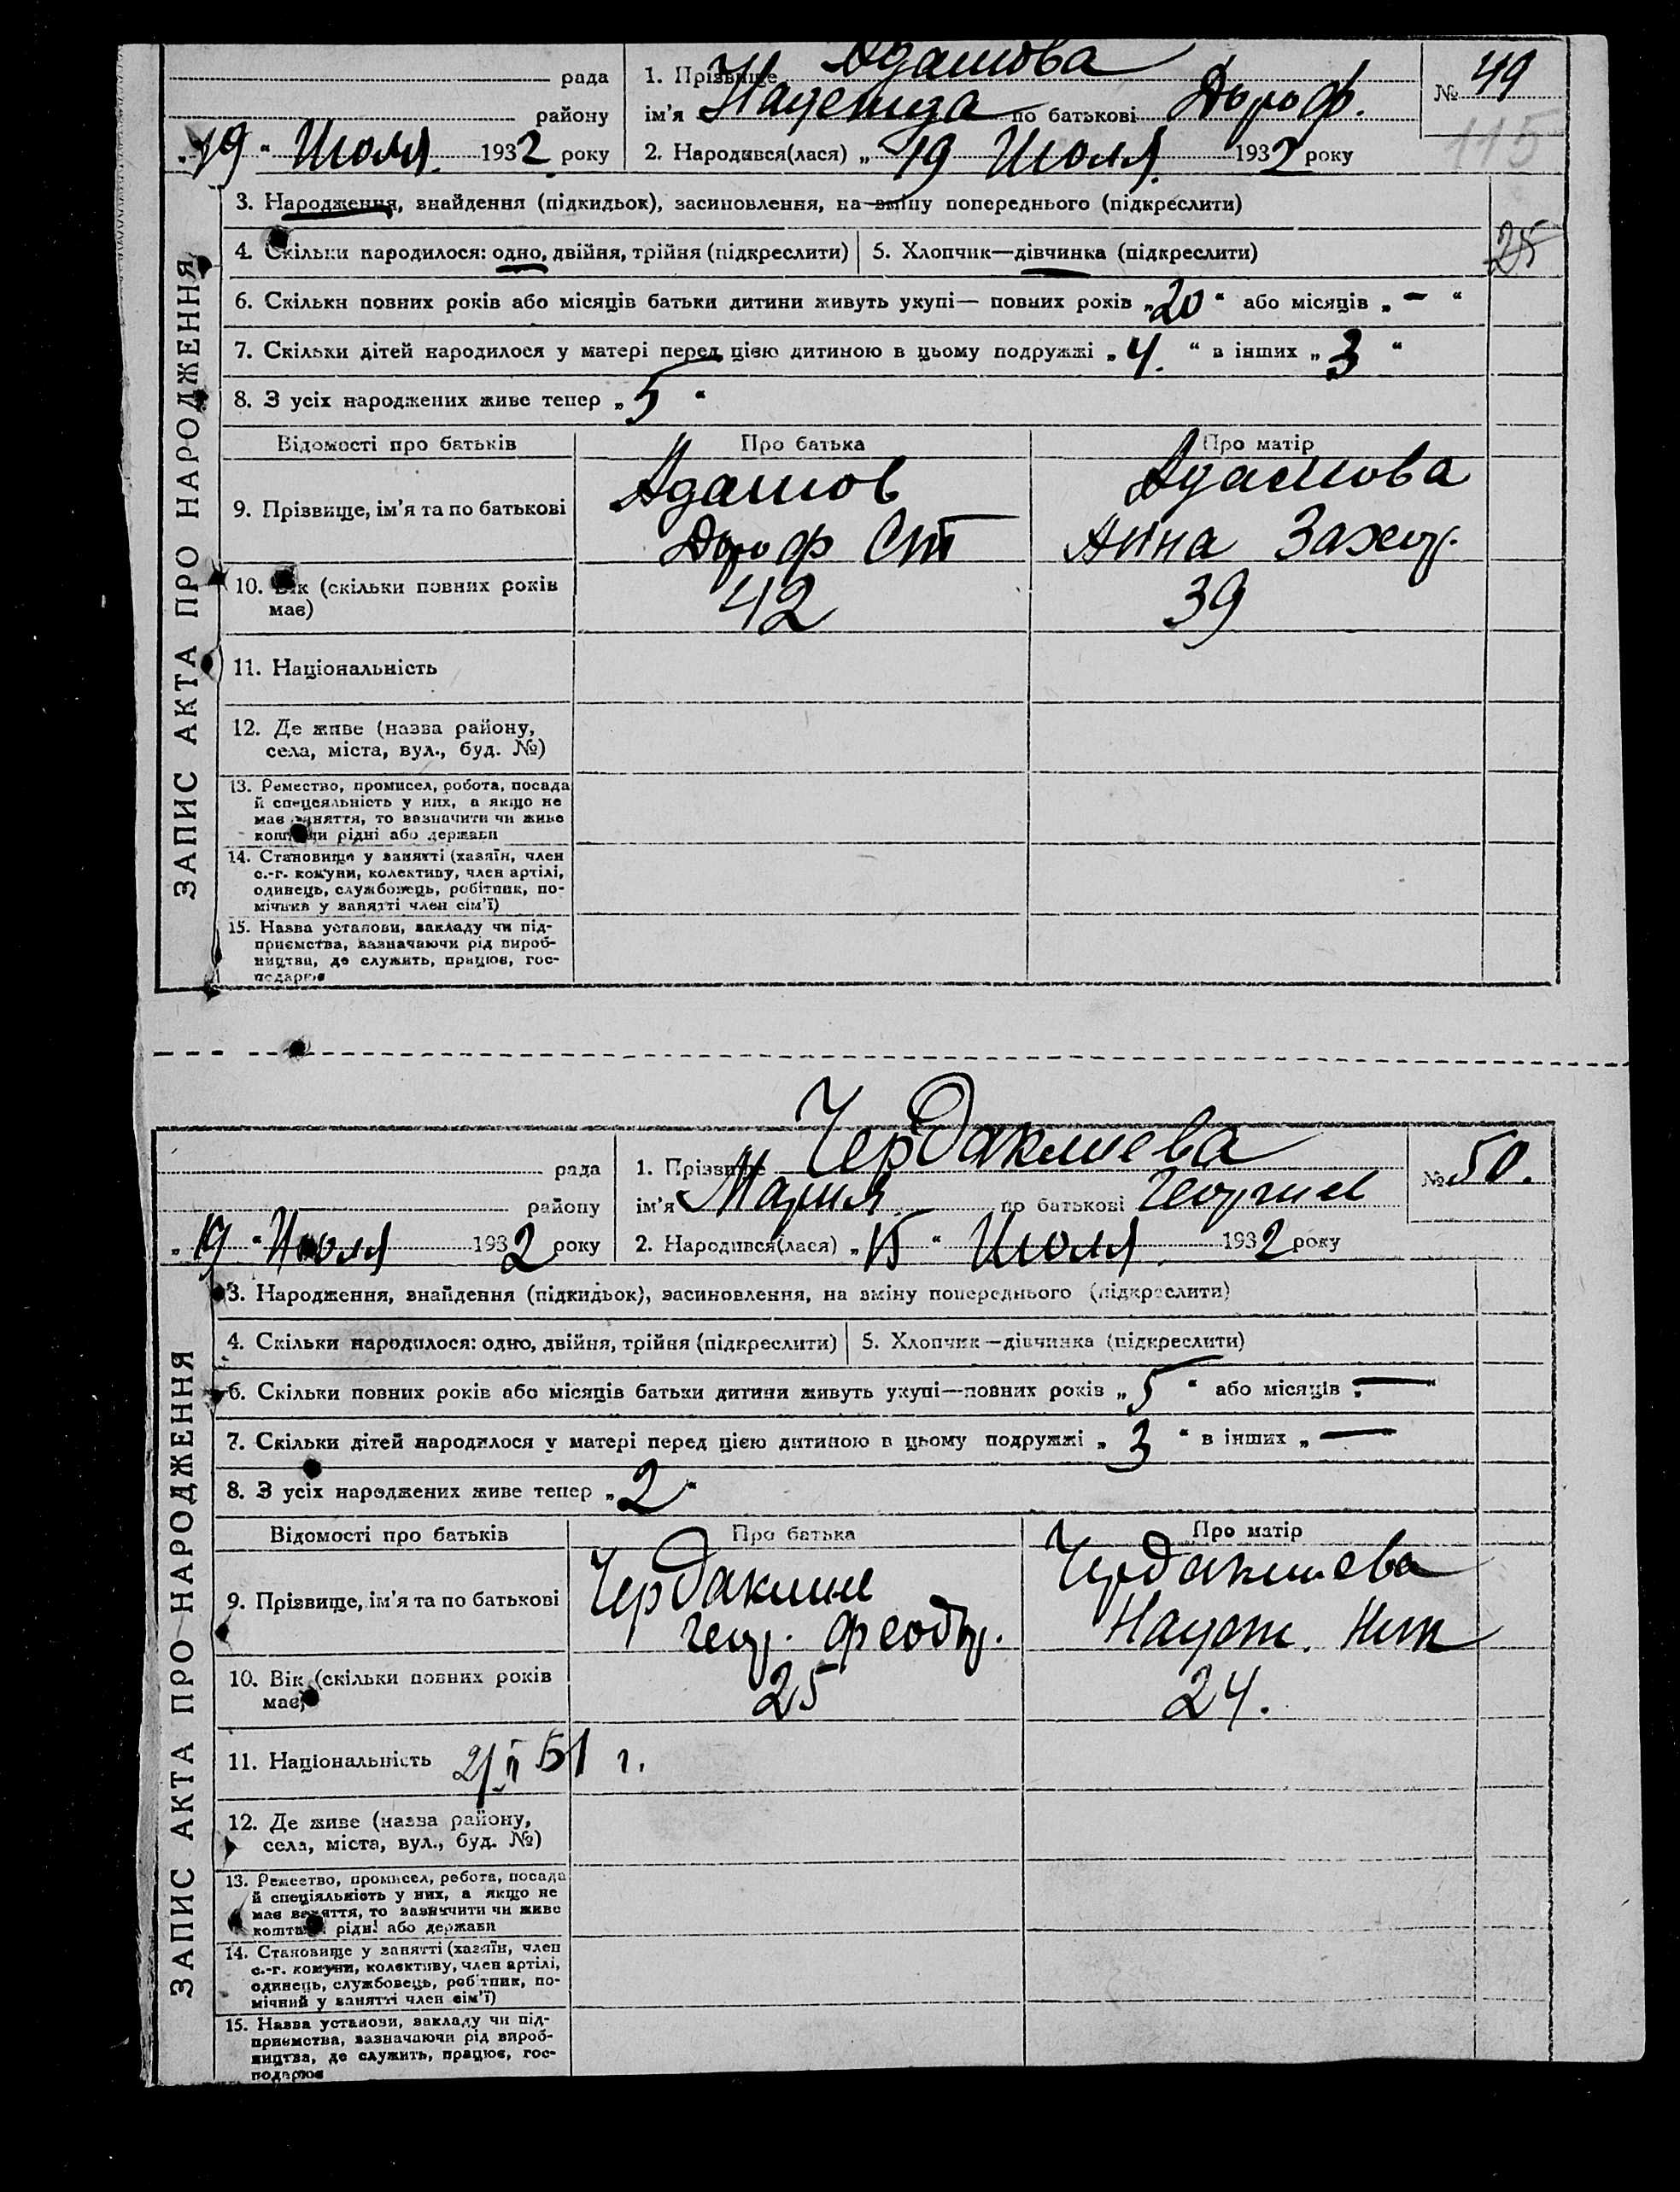 рада
району
„19“ Июля 1932 року
1. Прізвище Адамова
ім'я Надежда по батькові Дороф.
2. Народився(лася) „19 Июля 1932 року
№ 49
115
3. Народження, знайдення (підкидьок), засиновлення, на зміну попереднього (підкреслити)
4. Скільки народилося: одно, двійня, трійня (підкреслити) 5. Хлопчик—дівчинка (підкреслити)
25
6. Скільки повних років або місяців батьки дитини живуть укупі— повних років „20“ або місяців „–“
7. Скільки дітей народилося у матері перед цією дитиною в цьому подружжі „4.“ в інших „3“
8. З усіх народжених живе тепер „5“
Відомості про батьків Про батька Про матір
9. Прізвище, ім'я та по батькові
Адамов
Дороф Ст
Адамова
Анна Захар.
10. Вік (скільки повних років
має)
42
39
11. Національність
12. Де живе (назва району,
села, міста, вул., буд. №)
13. Ремество, промисел, робота, посада
й спецсяльність у них, а якщо не
має заняття, то вазначити чи живе
коштами рідні або держави
14. Становище у занятті (хазяїн, член
с.-г. комуни, колективу, член артілі,
одинець, службовець, робітник, по-
мічник у занятті член сім'ї)
15. Назва установи, закладу чи під-
приємства, вазначаючи рід вироб-
ництва, де служить, працює, гос-
подарює
ЗАПИС АКТА ПРО НАРОДЖЕННЯ
рада
району
„19“ Июля 1932 року
1. Прізвище Чердаклиева
ім'я Мария по батькові Георгиев
2. Народився(лася) „15“ Июля 1932 року
№ 50.
3. Народження, знайдення (підкидьок), засиновлення, на зміну попереднього (підкреслити)
4. Скільки народилося: одно, двійня, трійня (підкреслити) 5. Хлопчик—дівчинка (підкреслити)
6. Скільки повних років або місяців батьки дитини живуть укупі—повних років „5“ або місяців „—“
7. Скільки дітей народилося у матері перед цією дитиною в цьому подружжі „3“ в інших „—“
8. З усіх народжених живе тепер „2“
Відомості про батьків Про батька Про матір
9. Прізвище, ім'я та по батькові
Геор. Феодор.
Чердаклиева
Надеж. Ник
10. Вік (скільки повних років
має)
25
24.
11. Національність
2/II 51 г.
12. Де живе (назва району,
села, міста, вул., буд. №)
13. Ремество, промисел, робота, посада
й спеціяльність у них, а якщо не
має заняття, то зазначити чи живе
коштами рідні або держави
14. Становище у занятті (хазяїн, член
с.-г. комуни, колективу, член артілі,
одинець, службовець, робітник, по-
мічний у занятті член сім'ї)
15. Назва установи, закладу чи під-
приємства, зазначаючи рід вироб-
ництва, де служить, працює, гос-
подарює
ЗАПИС АКТА ПРО НАРОДЖЕННЯ